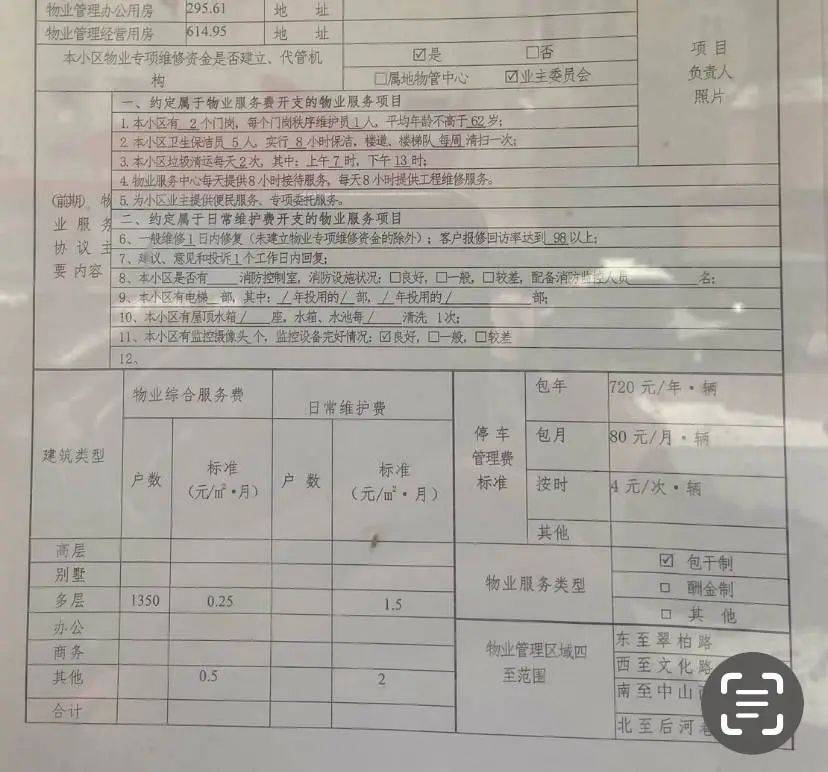 物业管理办公用房 295.61 地 址
物业管理经营用房 614.95 地 址
本小区物业专项维修资金是否建立、代管机构 ☑是 □否
□属地物管中心 ☑业主委员会
项目负责人照片
(前期)物业服务协议主要内容
一、约定属于物业服务费开支的物业服务项目
1.本小区有 2 个门岗，每个门岗秩序维护员 1 人，平均年龄不高于 62 岁；
2.本小区卫生保洁员 5 人，实行 8 小时保洁，楼道、楼梯队 每周 清扫一次；
3.本小区垃圾清运每天 2 次，其中：上午 7 时，下午 13 时；
4.物业服务中心每天提供8小时接待服务，每天8小时提供工程维修服务。
5.为小区业主提供便民服务、专项委托服务。
二、约定属于日常维护费开支的物业服务项目
6、一般维修 1 日内修复（未建立物业专项维修资金的除外）；客户报修回访率达到 98 以上；
7、建议、意见和投诉 1 个工作日内回复；
8、本小区是否有____消防控制室，消防设施状况：□良好，□一般，□较差，配备消防监控人员________名；
9、本小区有电梯__部，其中：/年投用的/部，/年投用的/________部；
10、本小区有屋顶水箱/____座，水箱、水池每/____清洗 1次；
11、本小区有监控摄像头_个，监控设备完好情况：☑良好，□一般，□较差
12、
建筑类型 物业综合服务费 日常维护费
户数 标准（元/㎡·月） 户 数 标准（元/㎡·月）
高层
别墅
多层 1350 0.25 1.5
办公
商务
其他 0.5 2
合计
停车管理费标准
包年 720 元/年·辆
包月 80 元/月·辆
按时 4 元/次·辆
其他
物业服务类型
☑ 包干制
□ 酬金制
□ 其 他
物业管理区域四至范围
东至翠柏路
西至文化路
南至中山
北至后河